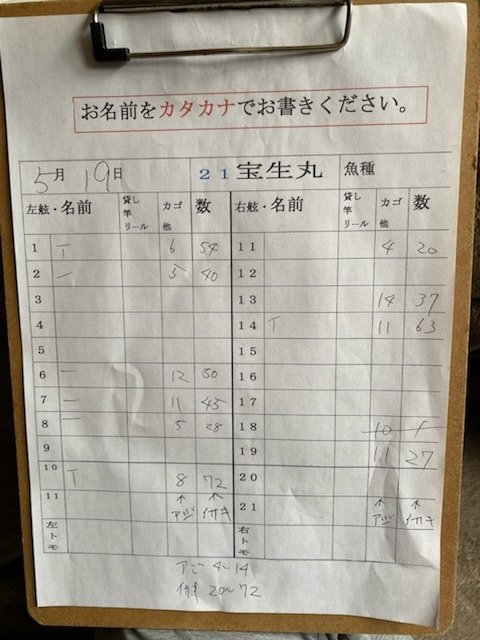 お名前をカタカナでお書きください。
5月 19日 21宝生丸 魚種
左舷・名前 貸し竿リール カゴ他 数 右舷・名前 貸し竿リール カゴ他 数
1 T 6 54 11 4 20
2 一 5 40 12
3 13 14 37
4 14 T 11 63
5 15
6 一 12 50 16
7 二 11 45 17
8 5 28 18 10 1
9 19 11 27
10 T 8 72 20
11 ↑アジ ↑イサキ 21 ↑アジ ↑イサキ
左トモ 右トモ
アジ 4~14
イサキ 20~72